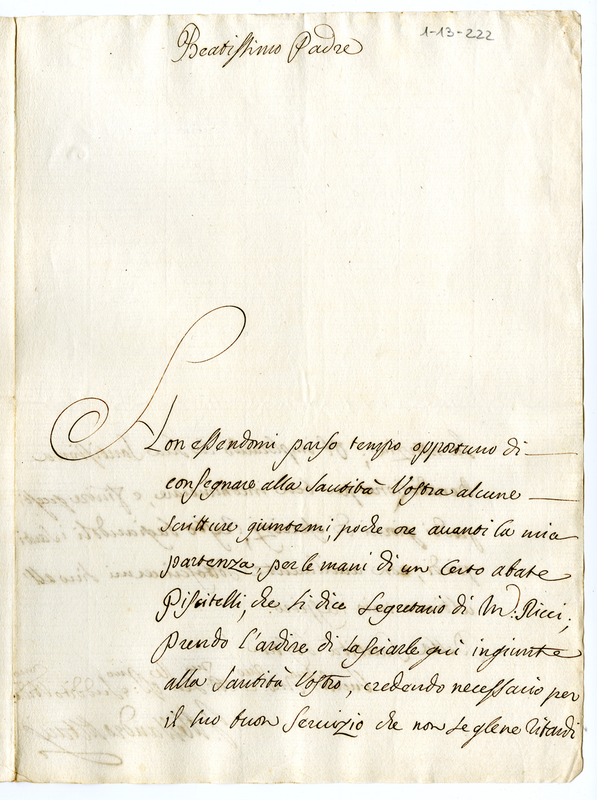 Beatissimo Padre
1-13-222
Non essendomi parso tempo opportuno di
consegnare alla Santità Vostra alcune
scritture giuntemi, poche ore avanti la mia
partenza, per le mani di un certo abate
Piscitelli, che si dice segretario di M.r Ricci,
prendo l'ardire di lasciarle qui ingiunte
alla Santità Vostra credendo necessario per
il suo buon servizio che non se glene ritardi